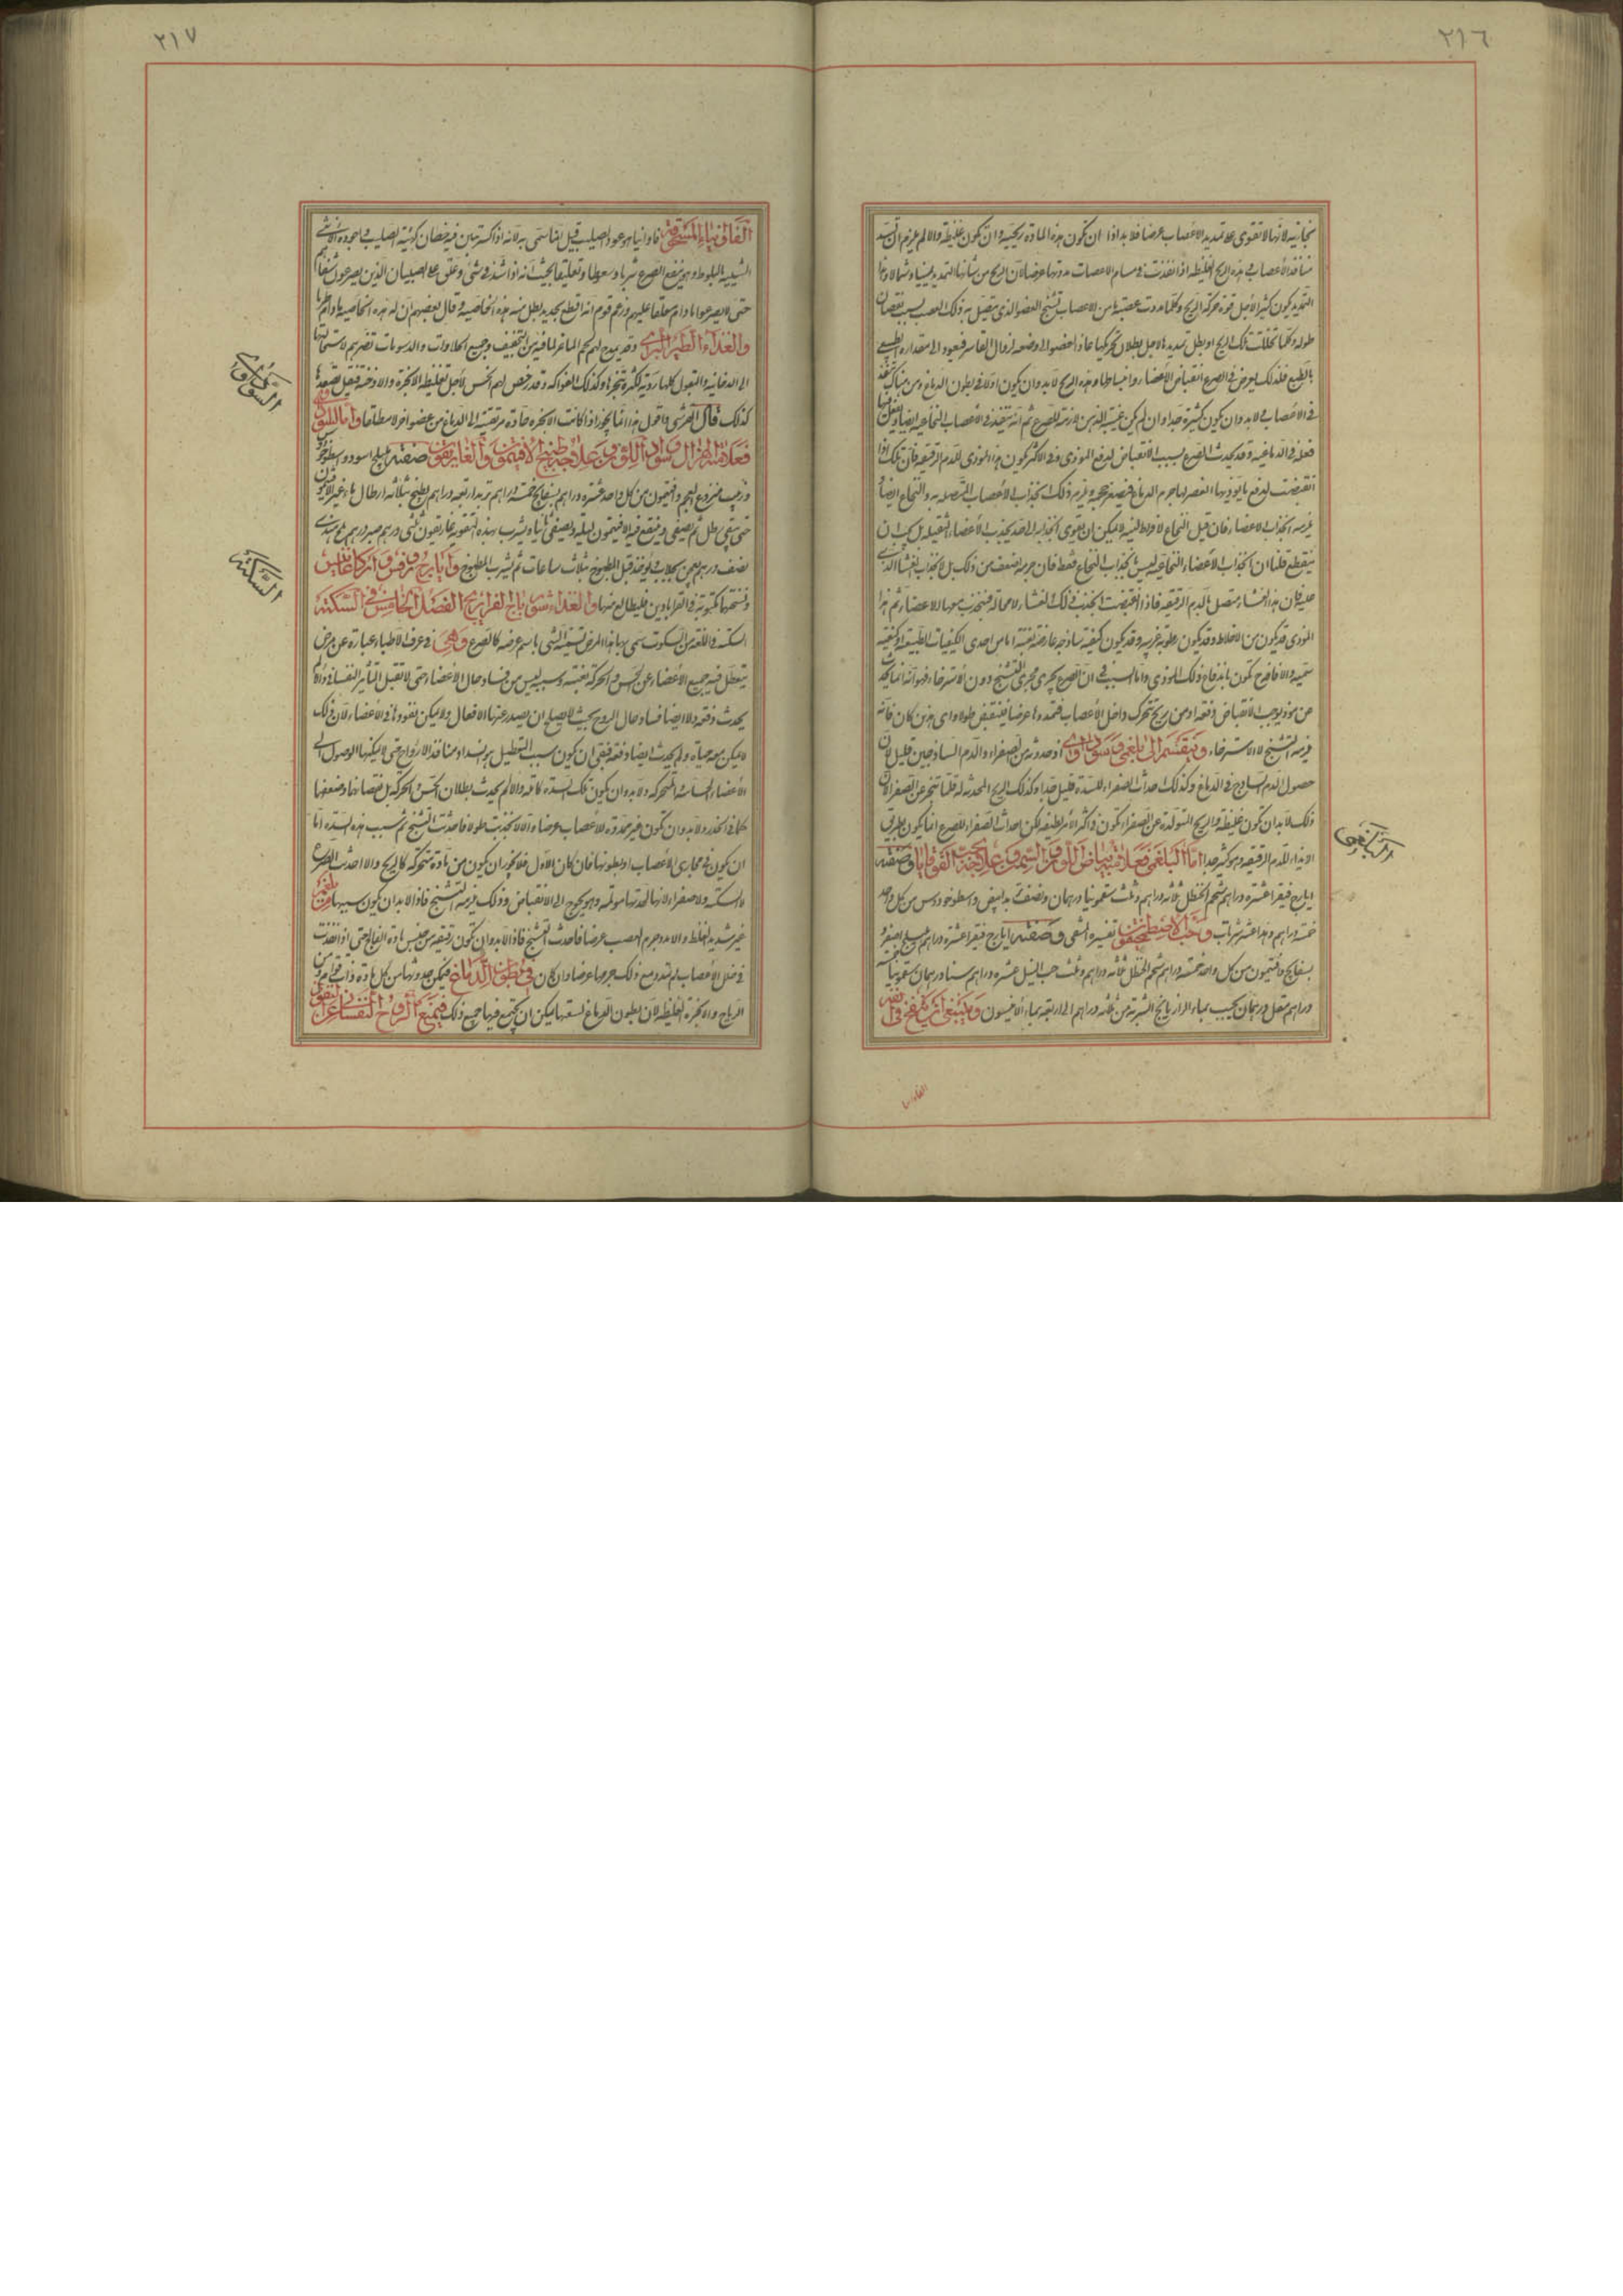 ٢١٦
بخاريه لانها لا تقوى على تمديد الاعصاب عرضا فلا بد اذا ان تكون هذه المادة ريحية وان تكون غليظة والا لم يلزم ان تسد
منافذ الاعصاب هذه الريح الغليظة اذا نفذت في مسام الاعصاب مددتها عرضا لان الريح من شانها التمديد يمينا وشمالا وهذا
التمديد يكون كثيرا لاجل قوة حركة الريح وكلما مددت عصبة ما من الاعصاب تشنج العضو الذي يتصل به ذلك العصب بسبب نقصان
طوله وكلما تحللت تلك الريح او بطل تمديدها لاجل بطلان تحركها عاد العضو الى وضعه لزوال القاسر فيعود الى مقداره الطبيعي
بالطبع فلذلك يعرض في الصرع انقباض الاعضاء وانبساطها وهذه الريح لا بد وان يكون اولا في بطون الدماغ ومن هناك تنفذ
في الاعصاب ولا بد وان يكون كثيرة جدا وان لم يكن غيبة الذهن لازمة للصرع ثم انه ينفذ في الاعصاب النخاعية ايضا ويفعل فيها
فعله في الدماغية وقد يحدث الصرع بسبب الانقباض لدفع الموذي وفي الاكثر يكون هذا الموذي للدم الرقيقه فان تلك اذا
انقبضت لدفع ما يؤذيها انعصر لها جرم الدماغ فيصغر حجمه ويلزم ذلك انجذاب الاعصاب المتصلة به والنخاع ايضا
يلزمه انجذاب الاعضاء فان قيل النخاع لافراط لينه لا يمكن ان يقوى انجذابه الى حد يجذب الاعضاء الثقيلة بل يجب ان
ينقطع قلنا ان انجذاب الاعضاء النخاعيه ليس بانجذاب النخاع فقط فان جرمه اضعف من ذلك بل لانجذاب الغشاء الذي
عليه فان هذا الغشاء متصل بالام الرقيقه فاذا انقبضت انجذب ذلك الغشاء لا محالة فينجذب معها الاعضاء ثم هذا
الموذي قد يكون من الاخلاط وقد يكون رطوبة غريبه وقد يكون كيفية ساذجه عارضة بغتة اما من احدى الكيفيات الطبيعة او كيفية
سمية والافاقة تكون باندفاع ذلك الموذي واما السبب في ان الصرع يجري مجرى التشنج دون الاسترخاء فهو انه انما يحدث
عن موذ يوجب الانقباض دفعة او من ريح تتحرك داخل الاعصاب فتمددها عرضا فينقبض طولا واي هذين كان فانه
يلزمه التشنج لا الاسترخاء وينقسم الى بلغمي وسوداوي اذ حدوثه من الصفراء والدم الساذجين قليل لان
حصول الدم الساذج في الدماغ وكذلك احداث الصفراء للسدة قليل جدا وكذلك الريح المحدثة له قلما تتبخر عن الصفراء لان
ذلك لا بد ان يكون غليظة والريح المتولدة عن الصفراء تكون في اكثر الامر لطيفه لكن احداث الصفراء للصرع انما يكون بطريق
الايذاء للام الرقيقه وهو كثير جدا اما البلغمي فعلامته بياض اللون والسمن وعلاجه بحب القوقايا وصفته
ايارج فيقرا عشرة دراهم شحم الحنظل ثلثة دراهم وثلث سقمونيا درهمان ونصف تربد ابيض واسطوخودوس من كل واحد
خمسة دراهم وهذا عشر شربات وحب الاصطمخيقون تفسيره المنقي وصفته ايارج فيقرا عشرة دراهم اهليلج اصفر و
بسفايج وافتيمون من كل واحد خمسة دراهم شحم الحنظل ثلثة دراهم وثلث حب النيل عشرة دراهم سنا درهمان سقمونيا خمسة
دراهم مقل درهمان يحبب بماء الرازيانج الشربة من ثلثة دراهم الى اربعة بماء الافسنتين وينبغي ان ينفخ في انفه
البلغمي
الفاوانيا
٢١٧
الفاونياء المسحوقة فاوانيا هو عود الصليب قيل انما سمي به لانه اذا كسر تبين فيه خطان كهيئة الصليب واجوده الانثى
الشبيه بالبلوط وهو ينفع الصرع شربا وسعوطا وتعليقا بحيث انه اذا شد في شيء وعلق على الصبيان الذين يصرعون شفاهم
حتى لا يصرعوا ما دام معلقا عليهم وزعم قوم انه ان قطع بحديد بطل منه هذه الخاصية وقال بعضهم ان له هذه الخاصية ما دام طريا
والغذاء الطير البري وقد يمدح لهم لحم الماعز لما فيه من التجفيف وجميع الحلاوات والدسومات تضرهم لاستحالتها
الى الدخانية والبقول كلها ردية لكثرة تبخرها وكذلك الفواكه وقد رخص لهم الخس لاجل تغليظه الابخرة والادخنة فيقل تصعدها
كذلك قال القرشي واقول هذا انما يجوز اذا كانت الابخره حادة مرتقية الى الدماغ من عضو اخر لا مطلقا واما السوداوي
فعلامته الهزال وسواد اللون وعلاجه طبيخ الافتيمون والغاريقون صفته اهليلج اسود واسطوخودوس
وزبيب منزوع العجم وافتيمون من كل واحد عشرة دراهم بسفايج خمسة دراهم تربد اربعة دراهم يطبخ بثلاثة ارطال ماء غير الافتيمون
حتى يبقى رطل ثم يصفى وينقع فيه الافتيمون ليلة ويصفى ثانيا ويشرب بهذه التقوية غاريقون ثلثي درهم صبر درهم ملح هندي
نصف درهم يعجن بجلاب ويؤخذ قبل المطبوخ بثلاث ساعات ثم يشرب المطبوخ وايارج روفس واركاغانيس
ونسختهما مكتوبة في القرابادين فليطالع منها والغذاء شورباج الفراريج الفصل الخامس في السكتة
السكتة في اللغة من السكوت سمي بها هذا المرض تسمية الشيء باسم عرضه كالصرع وهي في عرف الاطباء عبارة عن مرض
يتعطل فيه جميع الاعضاء عن الحس والحركة بغتة وسببه ليس من فساد حال الاعضاء حتى لا تقبل التأثير النفساني والا لم
يحدث دفعة ولا ايضا فساد حال الروح بحيث لا يصلح ان يصدر عنها الافعال ولا يمكن نفوذها في الاعضاء لان ذلك
لا يمكن معه حياة ولم يحدث ايضا دفعة فبقي ان يكون سبب التعطيل هو انسداد منافذ الارواح حتى لا يمكنها الوصول الى
الاعضاء الحساسة المتحركة ولا بد وان يكون تلك السدة كاملة والا لم يحدث بطلان الحس والحركة بل نقصانها وضعفها
كما في الخدر ولا بد وان تكون غير ممددة للاعصاب عرضا والا لانجذبت طولا فاحدثت التشنج ثم سبب هذه السدة اما
ان يكون في مجاري الاعصاب او بطونها فان كان الاول فلا يجوز ان يكون من مادة متحركة كالريح والا احدثت الصرع
لا السكتة ولا صفراء لانها لحدتها مولمة وهو يحوج الى الانقباض وذلك يلزمه التشنج فاذا لا بد ان يكون سببها من بلغم
غير شديد الغلظ والا مدد جرم العصب عرضا فاحدث التشنج فاذا لا بد وان تكون رقيقه من جنس مادة الفالج حتى اذا نفذت
في خلل الاعصاب لم تمدد مع ذلك جرمها عرضا وان كان في بطون الدماغ فيمكن حدوثها من كل مادة ذات قوام ومن
الرياح والابخرة الغليظة لان بطون الدماغ لسعتها يمكن ان يجتمع فيها جميع ذلك فيمتنع الروح النفساني عن النفوذ
السوداوي
السكتة